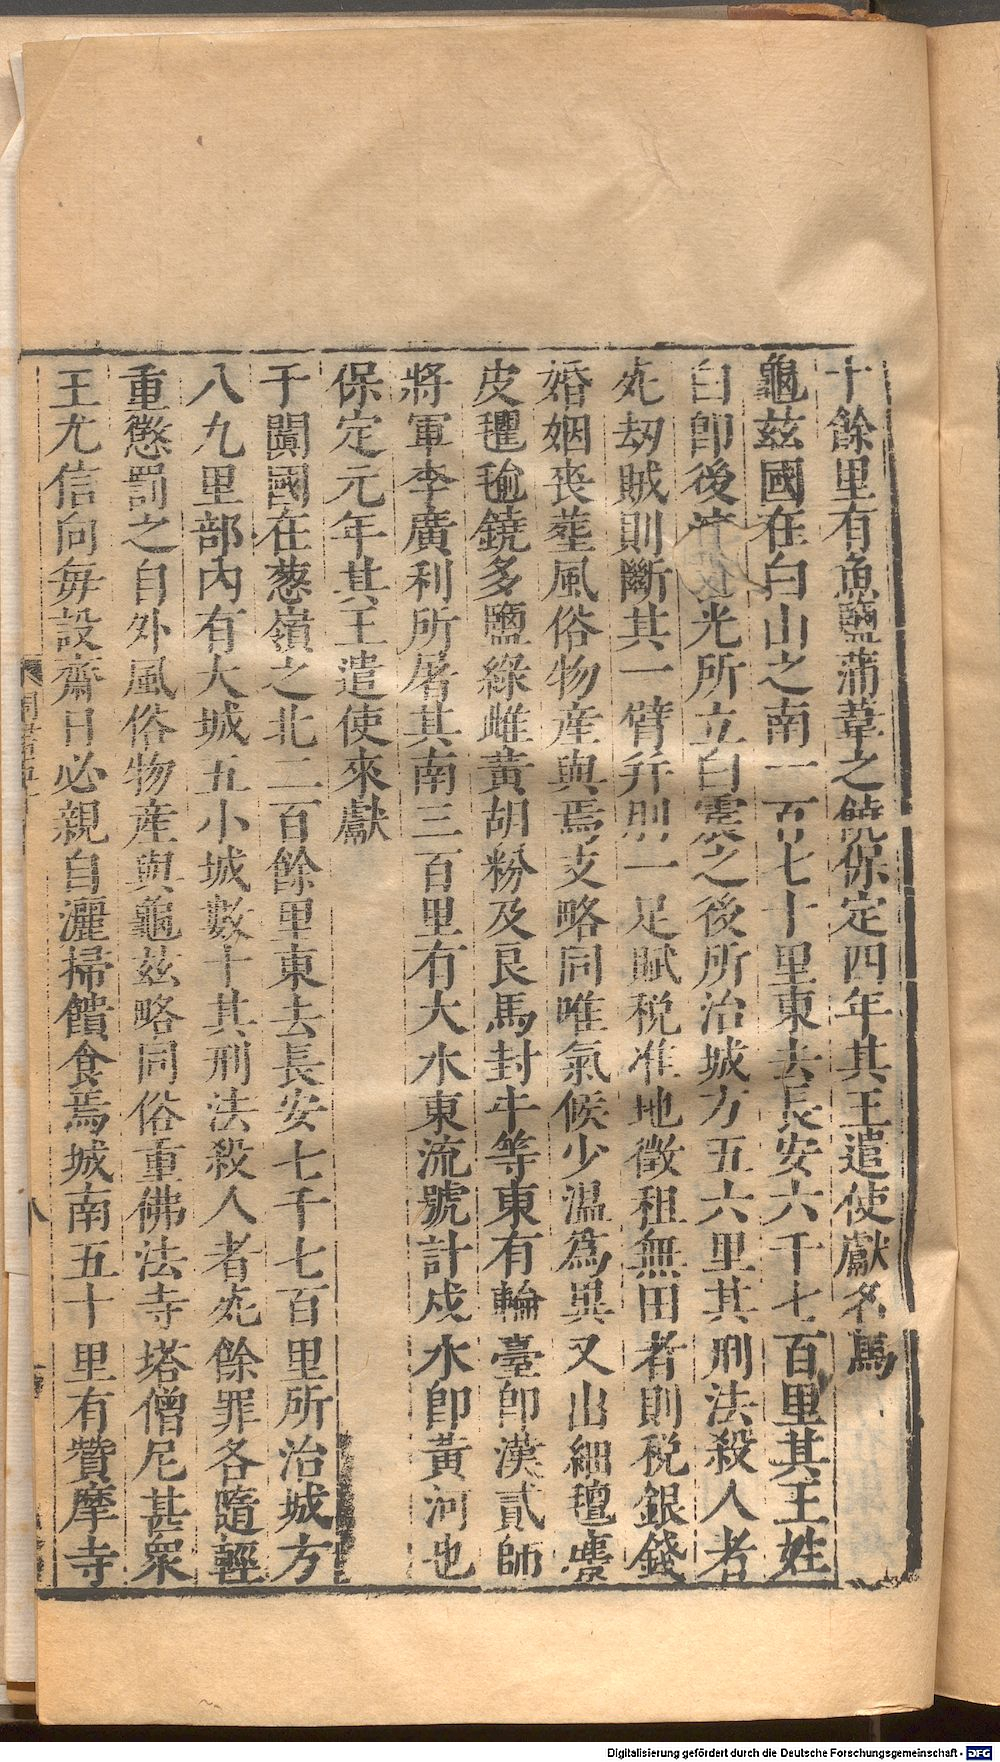 十餘里有魚鹽蒲葦之饒保定四年其王遣使獻名馬
龜茲國在白山之南一百七十里東去長安六千七百里其王姓
白即後光所立白震之後所治城方五六里其刑法殺人者
死劫賊則斷其一臂并刖一足賦稅准地徵租無田者則稅銀錢
婚姻喪葬風俗物產與焉支略同唯氣候少溫為異又出細氈麖
皮氍毹鐃多鹽綠雌黃胡粉及良馬封牛等東有輪臺即漢貳師
將軍李廣利所屠其南三百里有大水東流號計戍水即黃河也
保定元年其王遣使來獻
于闐國在葱嶺之北二百餘里東去長安七千七百里所治城方
八九里部內有大城五小城數十其刑法殺人者死餘罪各隨輕
重懲罰之自外風俗物產與龜茲略同俗重佛法寺塔僧尼甚衆
王尤信向每設齋日必親自灑掃饋食焉城南五十里有贊摩寺
八
Digitalisierung gefördert durch die Deutsche Forschungsgemeinschaft - DFG